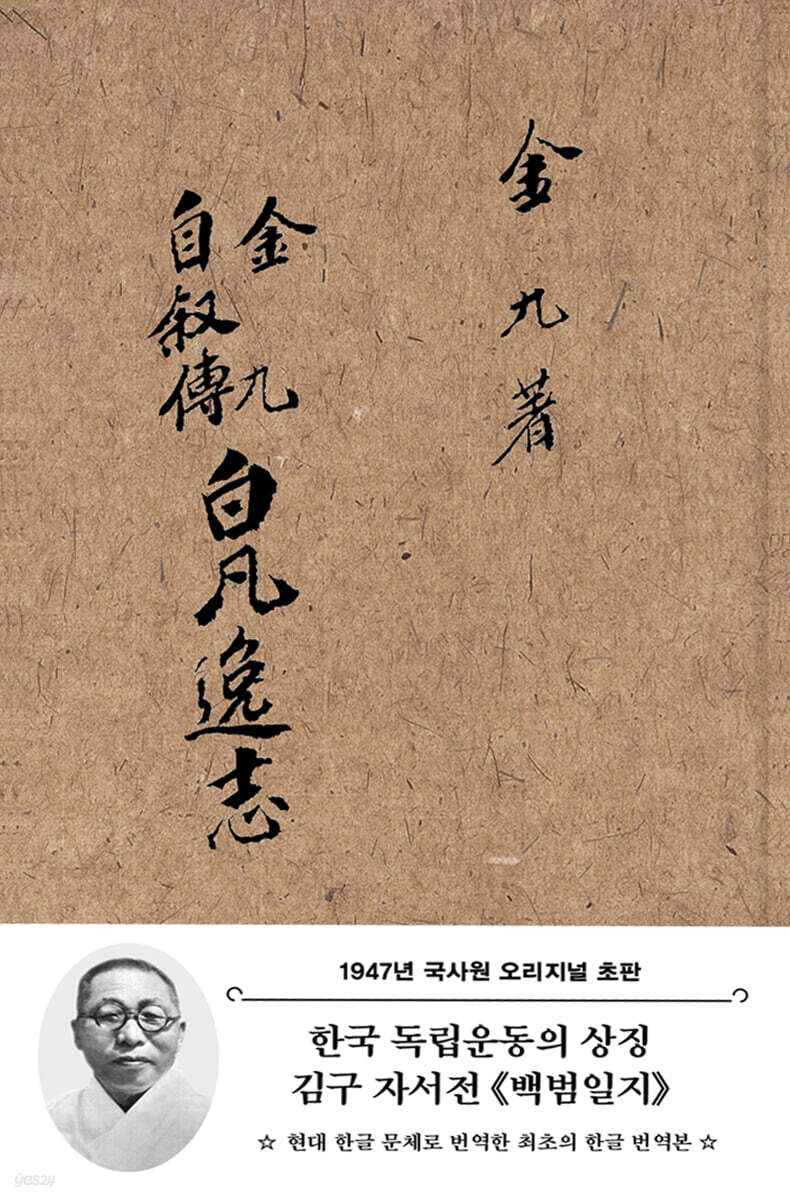 金九著
金九
自叙傳
白凡逸志
1947년 국사원 오리지널 초판
한국 독립운동의 상징
김구 자서전 《백범일지》
☆ 현대 한글 문체로 번역한 최초의 한글 번역본 ☆
yes24